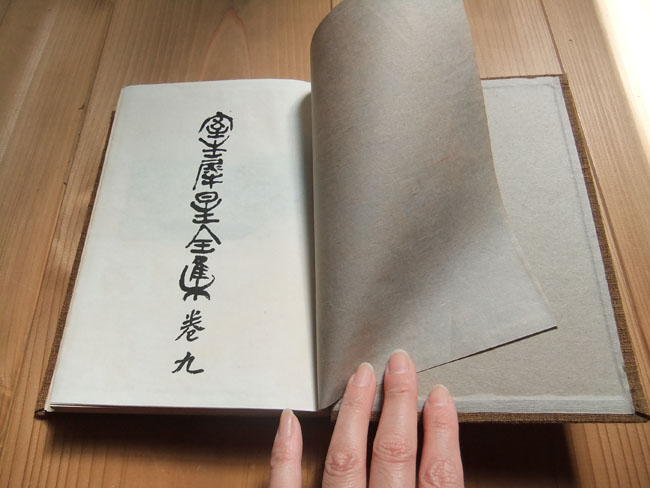 室生犀星全集 卷九